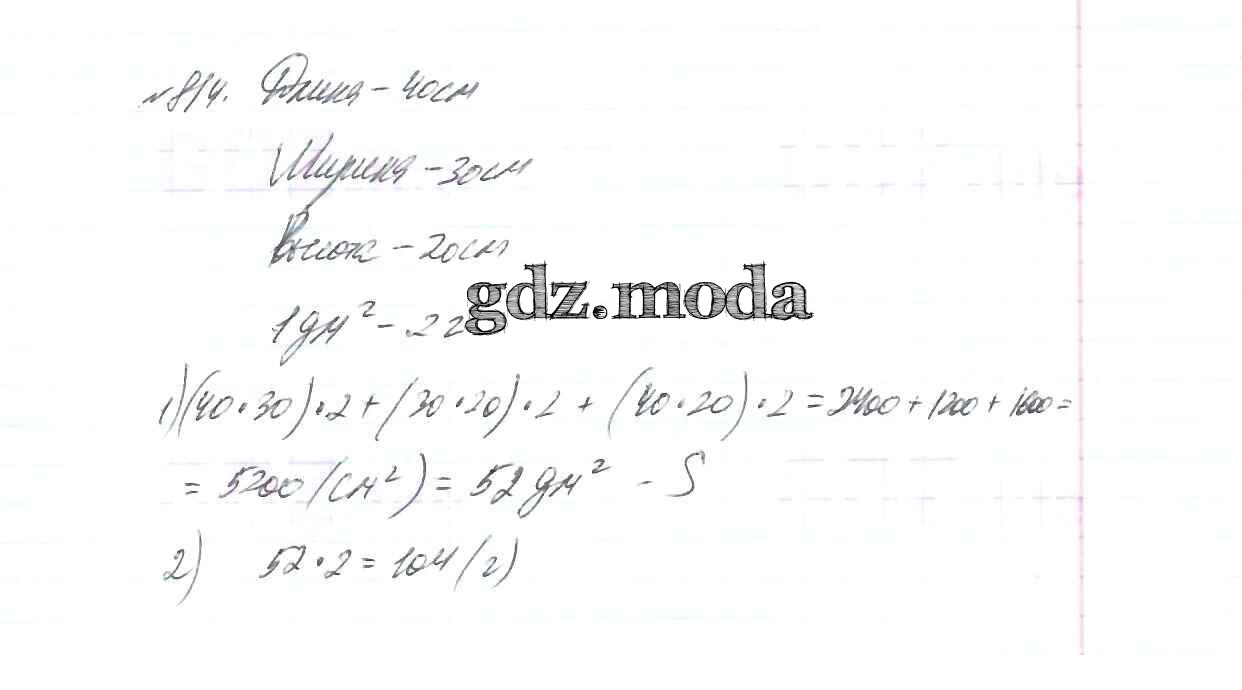 №814. Длина - 40см
Ширина - 30см
Высота - 20см
gdz.moda
1дм² - 2г
1) (40·30)·2+(30·20)·2+(40·20)·2=2400+1200+1600=
=5200(см²)=52дм² - S
2) 52·2=104(г)